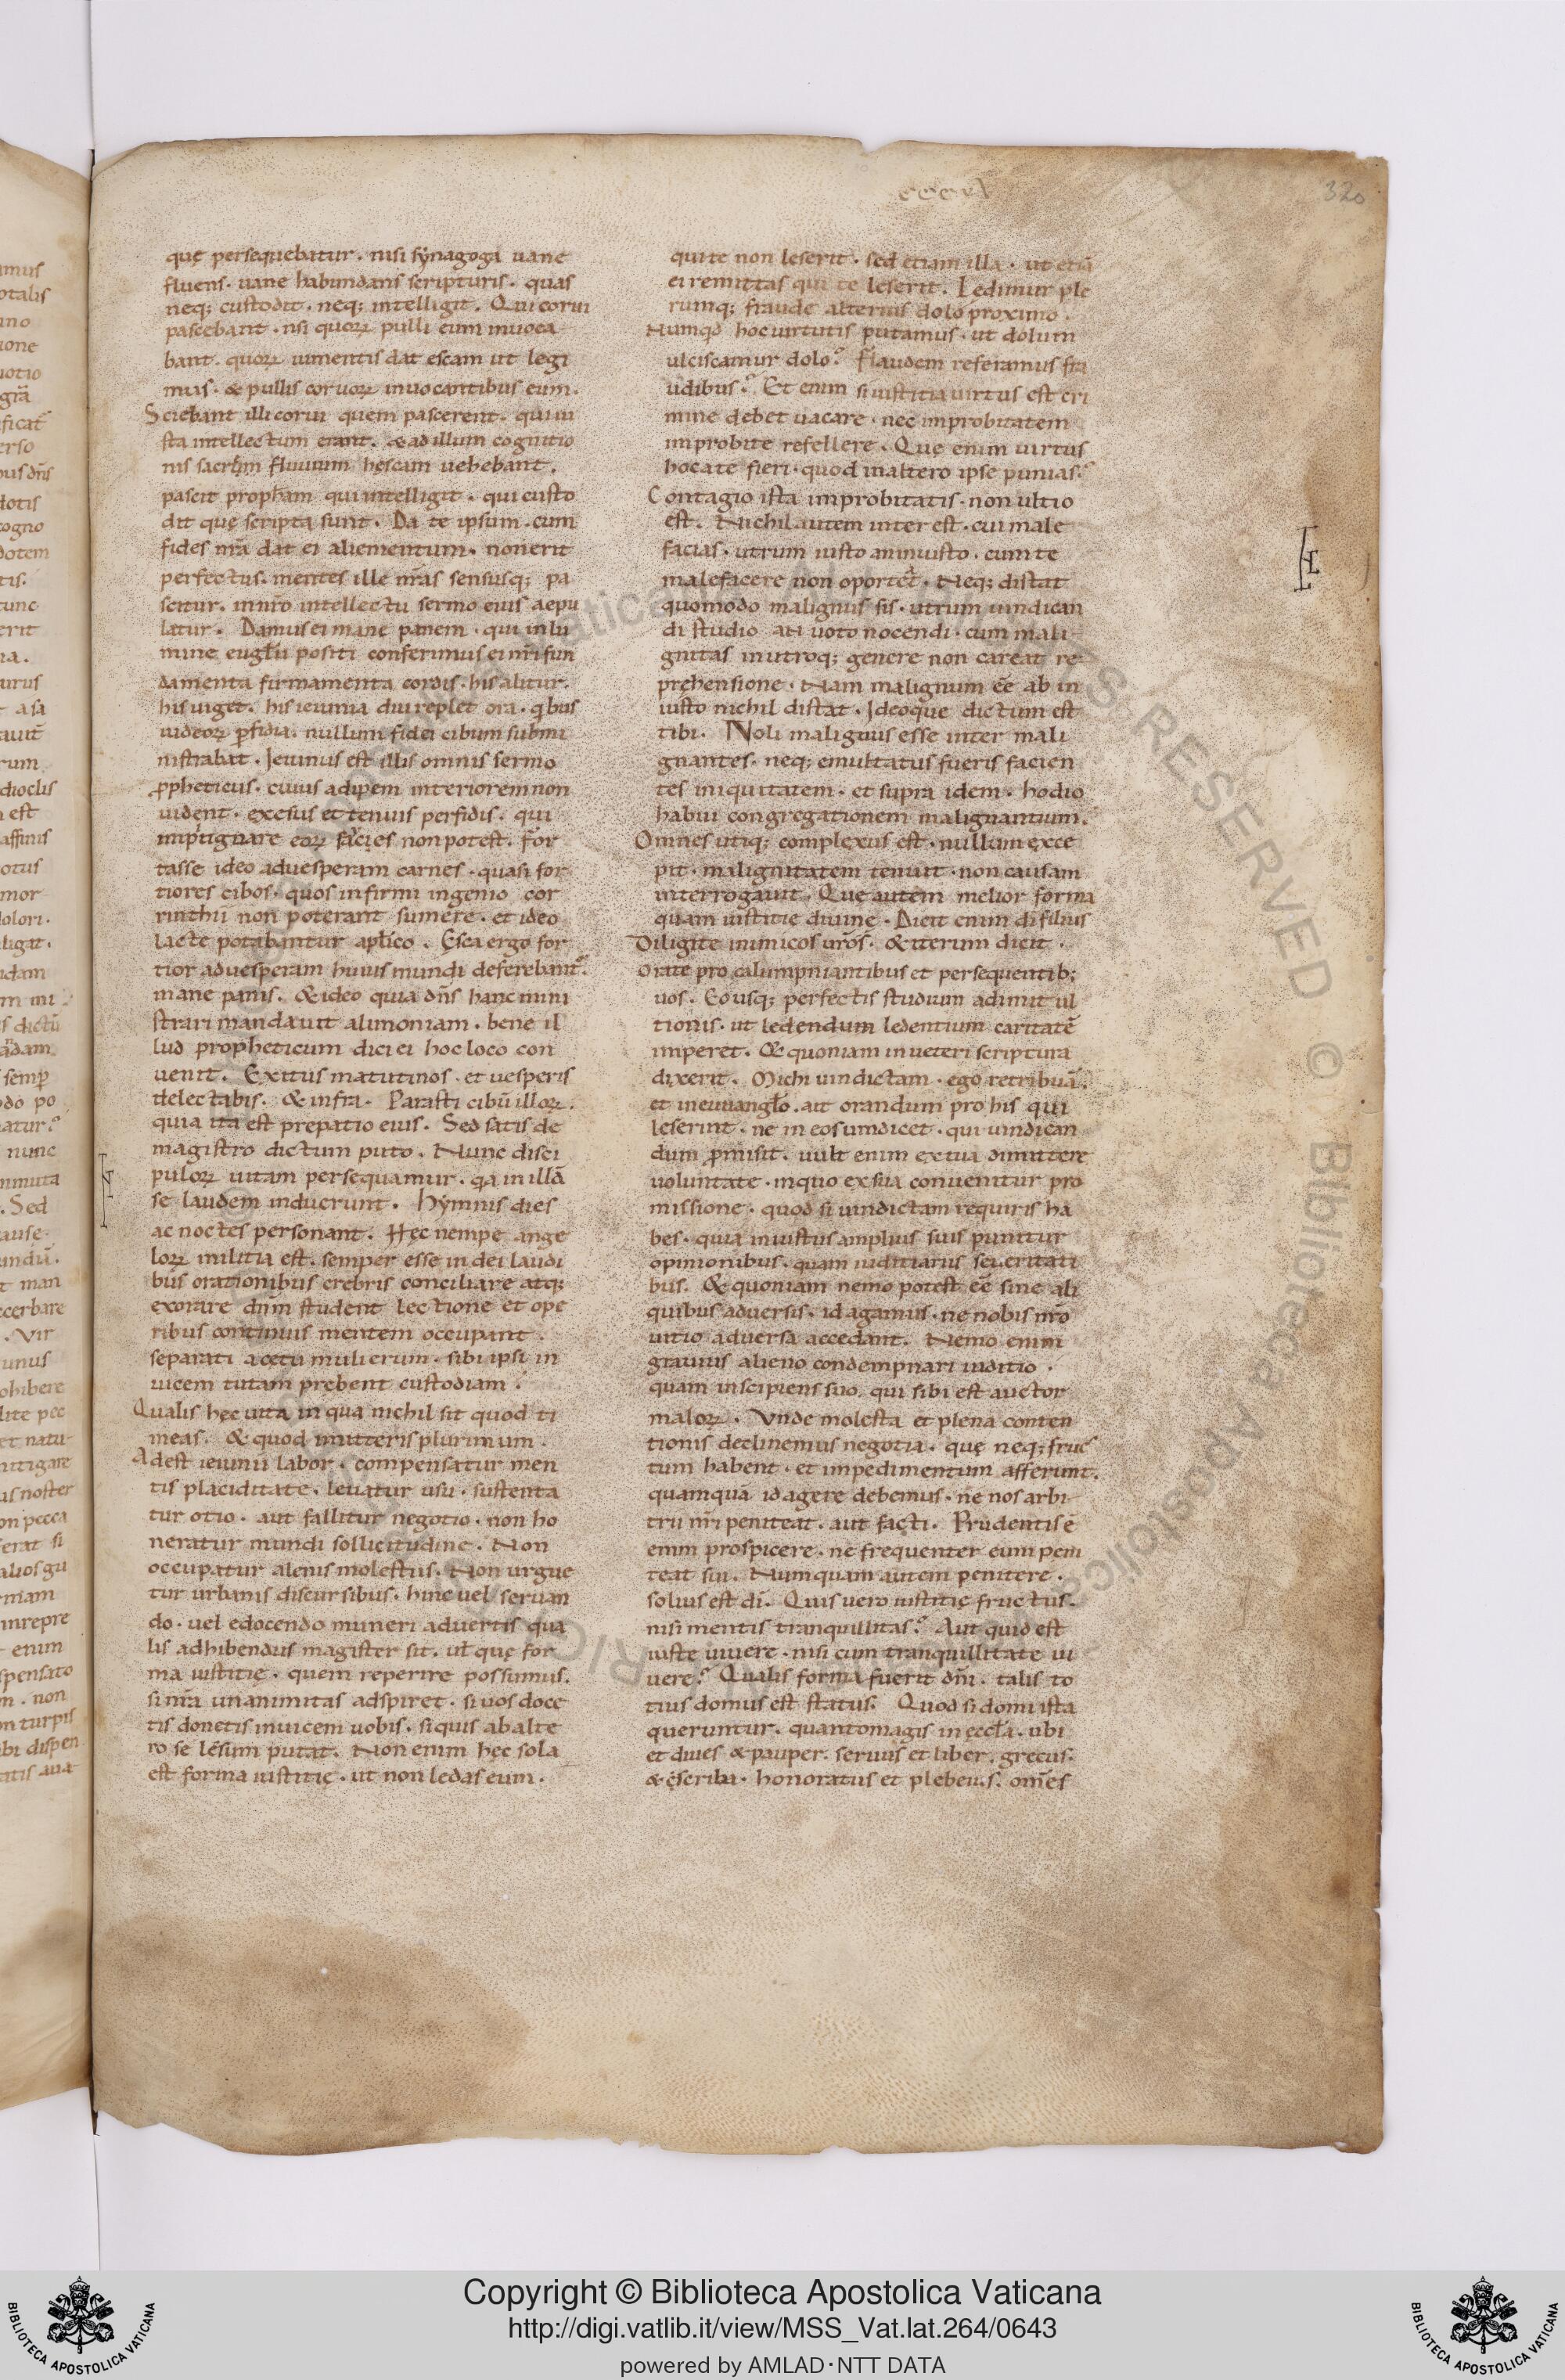 320
quę persequebatur. nisi synagoga uane
fluens. uane habundans scripturis. quas
neq; custodit. neq; intelligit. Qui corui
pascebant. nisi quoꝝ pulli eum inuoca
bant. quoꝝ iumentis dat escam ut legi
mus. & pullis coruoꝝ inuocantibus eum.
Sciebant illi corui quem pascerent. qui iu
sta intellectum erant. & ad illum cognitio
nis sacrẹ̄m fluuium hęscam uehebant.
pascit proph̄am qui intelligit. qui custo
dit quę scripta sunt. Da te ipsum. cum
fides nr̄a dat ei aliementum. non erit
perfectus. mentes ille nr̄as sensusq; pa
scitur. in nr̄o intellectu sermo eius aepu
latur. Damus ei mane panem. qui in lu
mine eugl̄ii positi conferimus ei nr̄i fun
damenta firmamenta cordis. his alitur.
his uiget. his ieiunia diu replet ora. qibus
iudeoꝝ ꝑfidia. nullum fidei cibum submi
nistrabat. Ieiunus est illis omnis sermo
ꝓpheticus. cuius adipem interiorem non
uident. exesus et tenuis perfidis. qui
impiguare eoꝝ facies non potest. For
tasse ideo ad uesperam carnes. quasi for
tiores cibos. quos infirmi ingenio cor
rinthii non poterant sumere. et ideo
lacte potabantur apl̄ico. Ęsca ergo for
tior ad uesperam huius mundi deferebant̄.
mane panis. & ideo quia dn̄s hanc mini
strari mandauit alimoniam. bene il
lud propheticum dici ei hoc loco con
uenit. Exitus matutinos. et uesperis
delectabis. & infra. Parasti cibū illoꝝ.
quia ita est prepatio eius. Sed satis de
magistro dictum puto. Nunc disci
puloꝝ uitam persequamur. qa in illā
se laudem induerunt. Hymnis dies
ac noctes personant. Hęc nempe ange
loꝝ militia est. semper esse in dei laudi
bus orationibus crebris conciliare atq;
exorare dnm student lectione et ope
ribus continuis mentem occupant.
separati a cetu mulierum. sibi ipsi in
uicem tutam prębent custodiam.
Qualis hęc uita in qua nichil sit quod ti
meas. & quod imitteris plurimum.
Adest ieiunii labor. compensatur men
tis placiditate. leuatur usu. sustenta
tur otio. aut fallitur negotio. non ho
neratur mundi sollicitudine. Non
occupatur alenis molestius. Non urgue
tur urbanis discursibus. hinc uel seruan
do. uel edocendo muneri aduertis qua
lis adhibendus magister sit. ut̄ quę for
ma iustitię. quem reperire possumus.
si nr̄a unanimitas adspiret. si uos doce
tis donetis inuicem uobis. si quis ab alte
ro se lesum putat. Non enim hęc sola
est forma iustitię. ut non ledas eum.
qui te non leserit. sed etiam illa. ut etiā
ei remittas qui te leserit. Ledimur ple
rumq; fraude alterius dolo proximo.
Numqd hoc uirtutis putamus. ut dolum
ulciscamur dolo? Fraudem referamus fra
udibus? Et enim si iustitia uirtus est cri
mine debet uacare. nec improbitatem
improbite refellere. Quę enim uirtus
hoc a te fieri. quod in altero ipse punias?
Contagio ista improbitatis. non ultio
est. Nichil autem inter est. cui male
facias. utrum iusto an iniusto. cum te
malefacere non oportet. Neq; distat
quomodo malignus sis. utrum uindican
di studio an uoto nocendi. cum mali
gnitas in utroq; genere non careat re
pręhensione. Nam malignum eē ab in
iusto nichil distat. Ideoque dictum est
tibi. Noli malignus esse inter mali
gnantes. neq; emultatus fueris facien
tes iniquitatem. et supra idem. hodio
habui congregationem malignantium.
Omnes utiq; complexus est. nullum exce
pit. malignitatem tenuit. non causam
interrogauit. Quę autem melior forma
quam iustitie diuine. Dicit enim di filius
Diligite inimicos ur̄os. & iterum dicit.
orate pro calumpniantibus et persequentib;
uos. Eousq; perfectis studium adimit ul
tionis. ut ledendum ledentium caritatē
imperet. & quoniam in ueteri scriptura
dixerit. Michi uindictam. ego retribuā.
et in euuangl̄o. ait orandum pro his qui
leserint. ne in eos uindicet. qui uindican
dum ꝓmisit. uult enim ex tua dimittere
uoluntate. in quo ex sua conuenitur pro
missione. quod si uindictam requiris ha
bes. quia iniustus amplius suis punitur
opinionibus. quam iuditiariis seueritati
bus. & quoniam nemo potest eē sine ali
quibus aduersis. id agamus. ne nobis nr̄o
uitio aduersa accedant. Nemo enim
grauius alieno condempnari iuditio.
quam inscipiens suo. qui sibi est auctor
maloꝝ. Vnde molesta et plena conten
tionis declinemus negotia. quę neq; fruc
tum habent. et impedimentum afferunt.
quamquā id agere debemus. ne nos arbi
trii nr̄i peniteat. aut facti. Prudentis ē
enim prospicere. ne frequenter eum peni
teat sui. Numquam autem penitere.
solius est di. Quis uero iustitię fructus.
nisi mentis tranquillitas? Aut quid est
iuste uiuere. nisi cum tranquillitate ui
uere? Qualis forma fuerit dn̄i. talis to
tius domus est status. Quod si domi ista
queruntur. quanto magis in eccl̄a. ubi
et diues & pauper. seruus et liber. grecus.
& ęscriba. honoratus et plebeius. om̄es
Copyright © Biblioteca Apostolica Vaticana
http://digi.vatlib.it/view/MSS_Vat.lat.264/0643
powered by AMLAD·NTT DATA
BIBLIOTECA APOSTOLICA VATICANA
BIBLIOTECA APOSTOLICA VATICANA